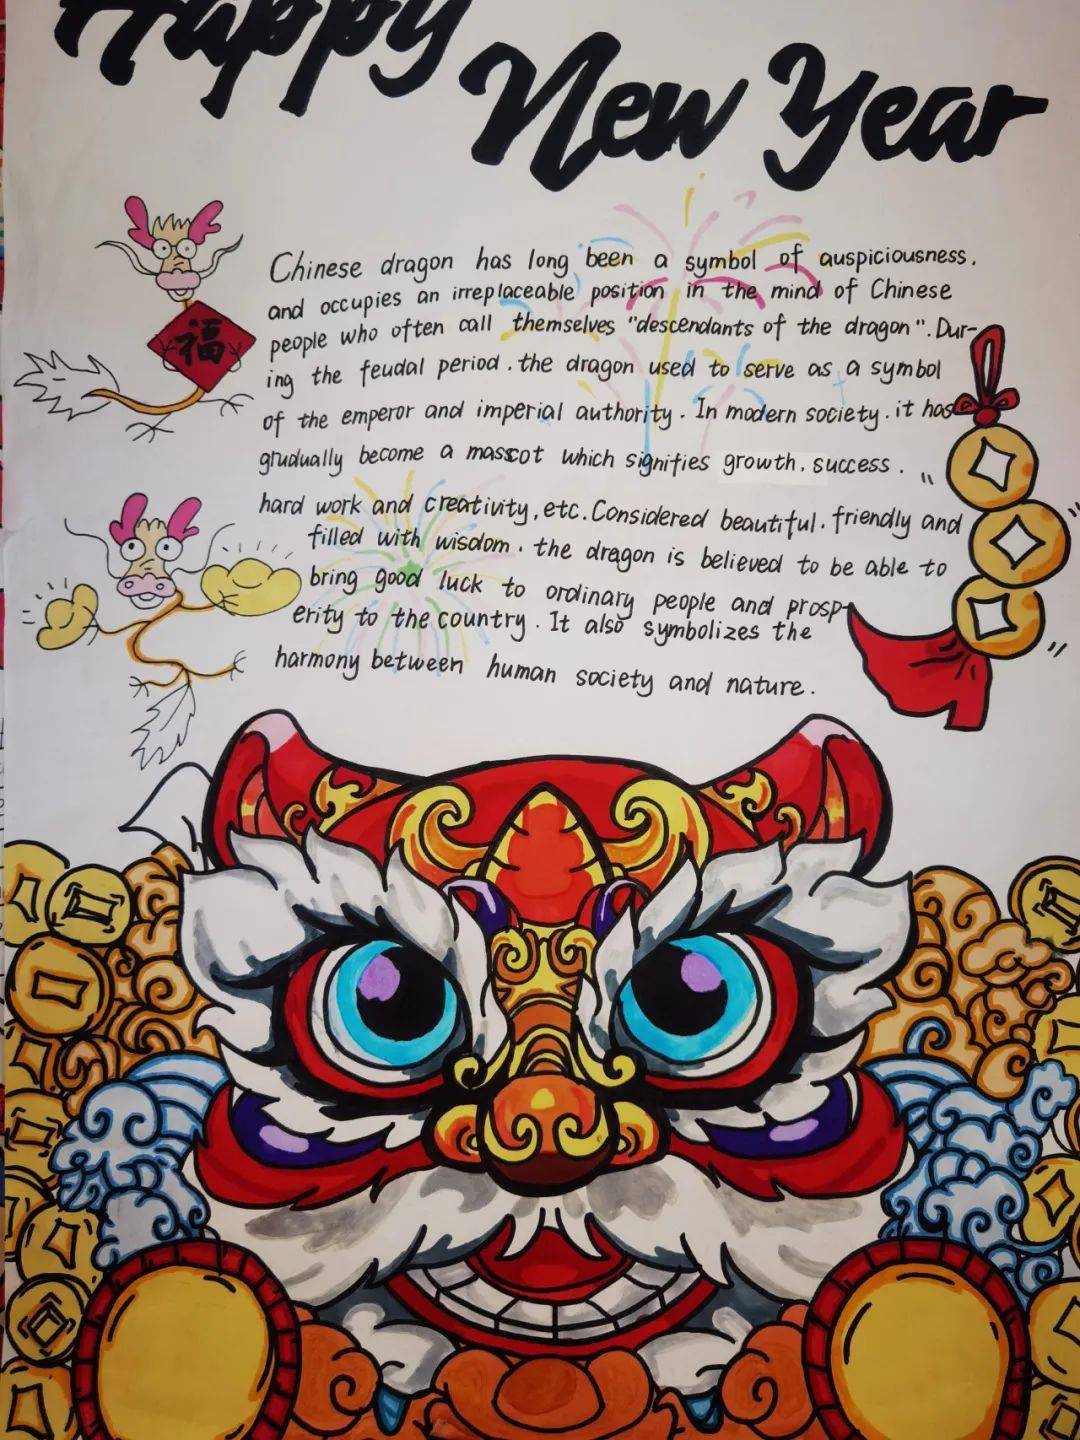 Happy
New Year
Chinese dragon has long been a symbol of auspiciousness.
and occupies an irreplaceable position in the mind of Chinese
people who often call themselves "descendants of the dragon". Dur-
ing the feudal period. the dragon used to serve as a symbol
of the emperor and imperial authority. In modern society. it has
gradually become a mascot which signifies growth. success.
hard work and creativity, etc. Considered beautiful. friendly and
filled with wisdom. the dragon is believed to be able to
bring good luck to ordinary people and prosp-
erity to the country. It also symbolizes the
harmony between human society and nature.
福